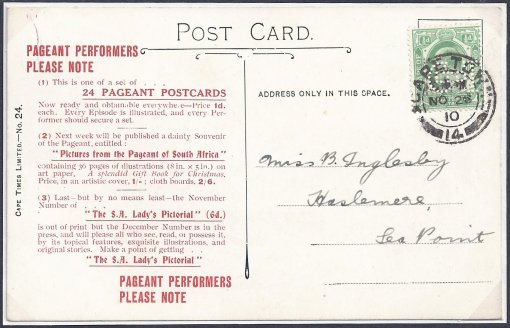 POST CARD.
PAGEANT PERFORMERS
PLEASE NOTE
(1) This is one of a set of . . .
24 PAGEANT POSTCARDS
Now ready and obtainable everywhere—Price 1d.
each. Every Episode is illustrated, and every Per-
former should secure a set.
(2) Next week will be published a dainty Souvenir
of the Pageant, entitled :
"Pictures from the Pageant of South Africa"
containing 36 pages of illustrations (8 in. × 5 in.) on
art paper. A splendid Gift Book for Christmas.
Price, in an artistic cover, 1/- ; cloth boards, 2/6.
(3) Last—but by no means least—the November
Number of . . . .
"The S.A. Lady's Pictorial" (6d.)
is out of print but the December Number is in the
press, and will please all who see, read, or possess it,
by its topical features, exquisite illustrations, and
original stories. Make a point of getting . .
"The S.A. Lady's Pictorial"
PAGEANT PERFORMERS
PLEASE NOTE
CAPE TIMES LIMITED.—No. 24.
ADDRESS ONLY IN THIS SPACE.
CAPE TOWN
NO 28
10
14
Miss B. Inglesby
Haslemere,
Sea Point